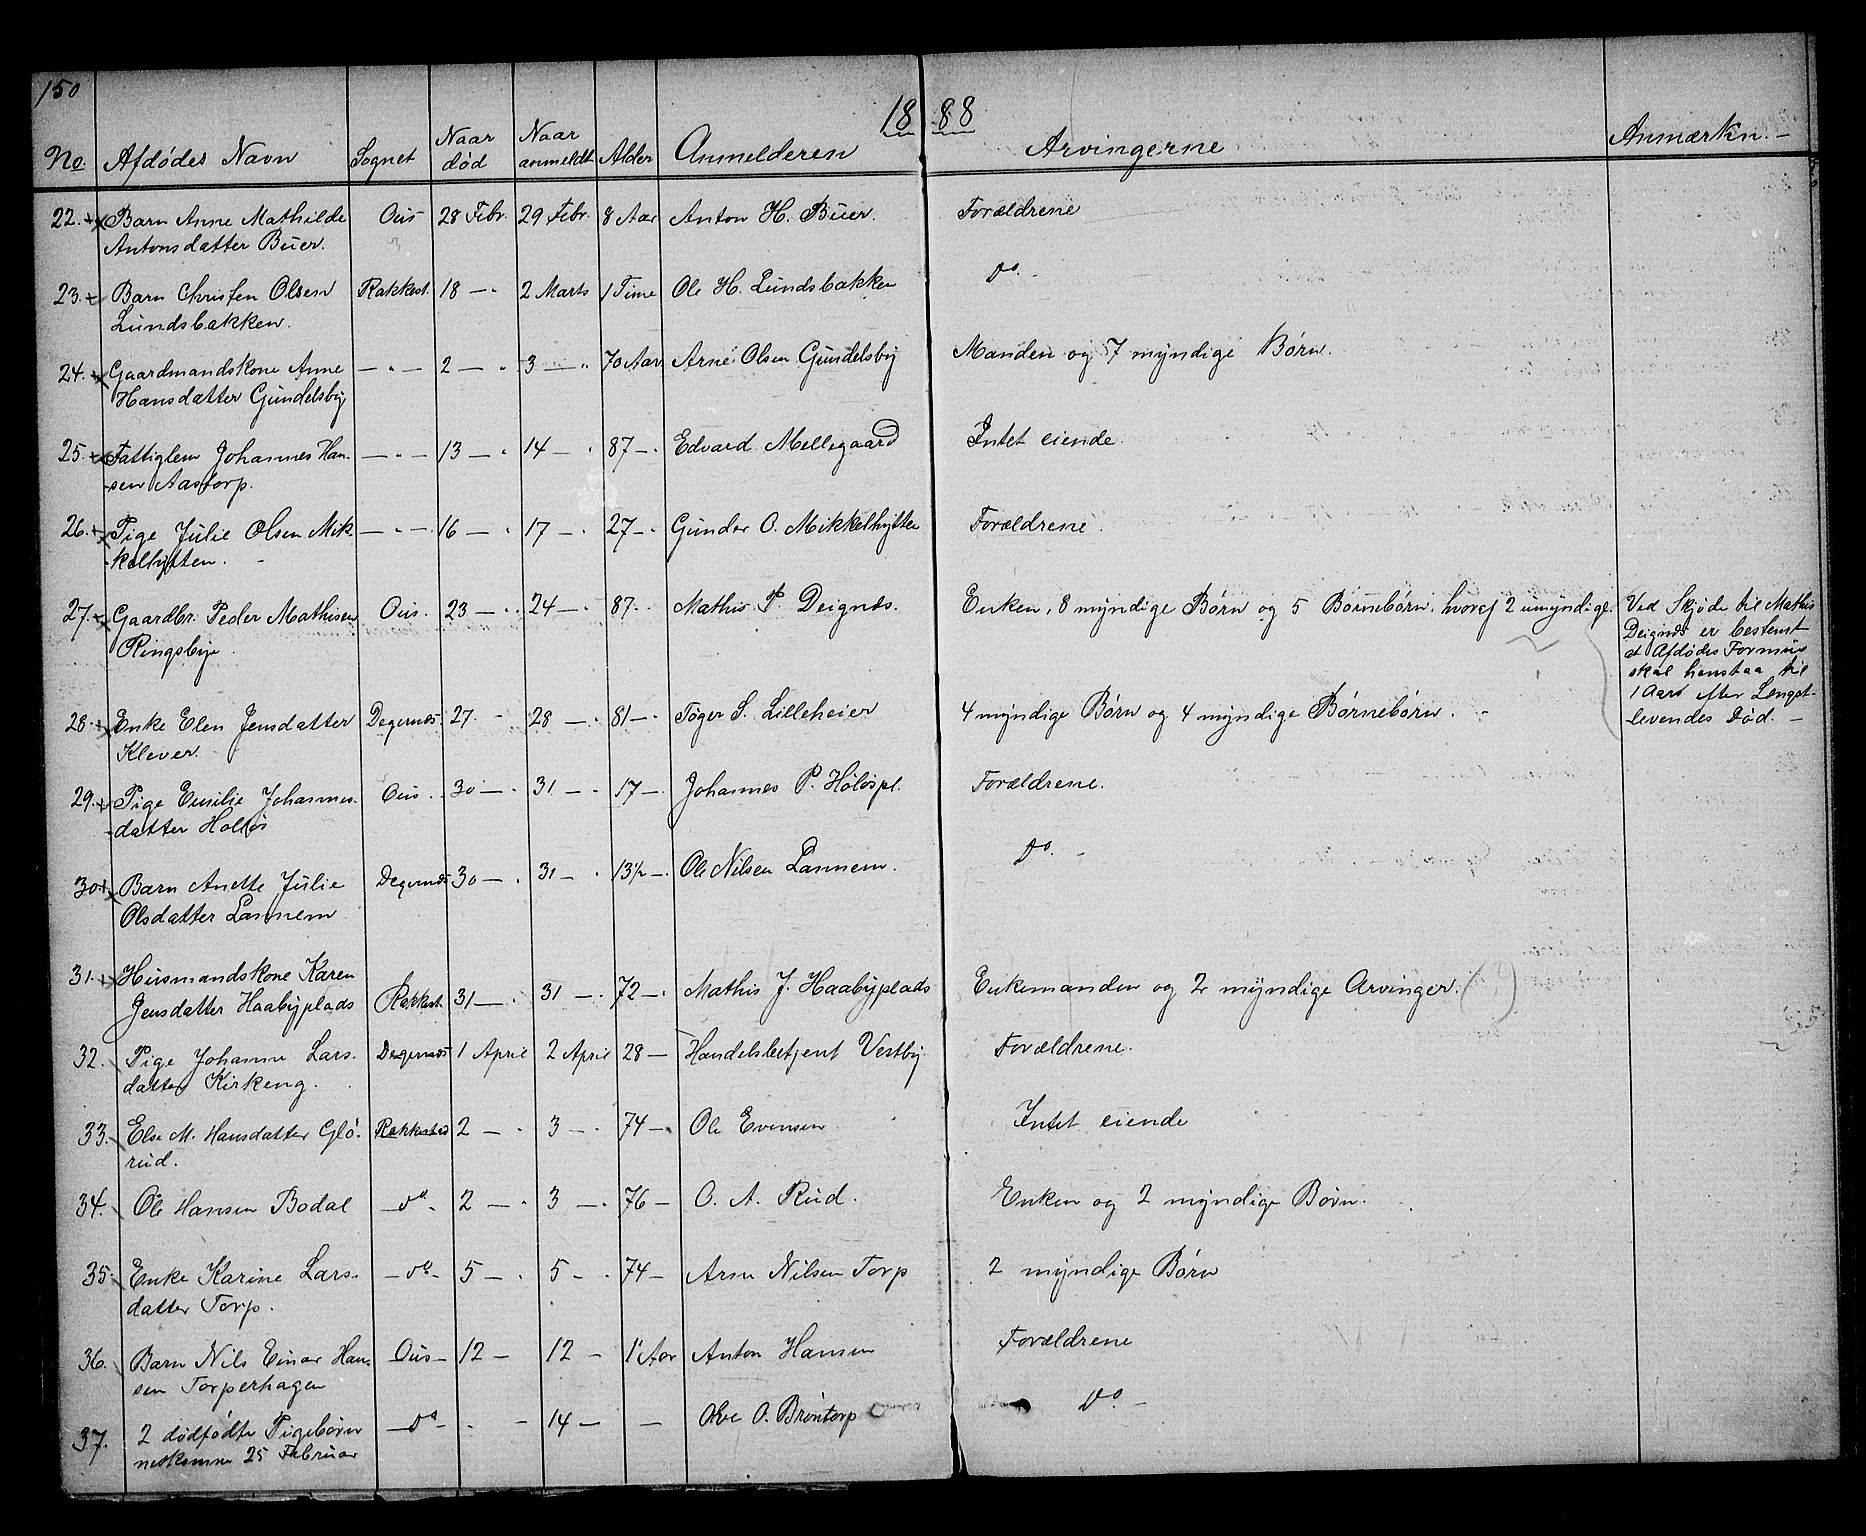 150
1888
No. Afdødes Navn Sognet Naar død Naar anmeldt Alder Anmelderen Arvingerne Anmærkn. —
22. Barn Anne Mathilde Ous 28 Febr. 29 Febr. 8 Aar Anton H. Buer. Forældrene
Antonsdatter Buer.
23. Barn Christen Olsen Rakkest. 18 — " 2 Marts 1 Time Ole H. Lundsbakken Do. -
Lundsbakken.
24. Gaardmandskone Anne — " — 2 — " 3 — " 70 Aar Arne Olsen Gundelsby Manden og 7 myndige Børn.
Hansdatter Gundelsby
25. Fattiglem Johannes Han- — " — 13 — " 14 — " 87 — " Edvard Mellegaard Intet eiende.
-sen Aastorp.
26. Pige Julie Olsen Mik- — " — 16 — " 17 — " 27 — " Gunder O. Mikkelhytten Forældrene.
-kelhytten. -
27. Gaardbr. Peder Mathisen Ous. 23 — " 24 — " 87 - Mathis P. Deignæs. Enken, 8 myndige Børn og 5 Børnebørn, hvoraf 2 umyndige. Ved Skjøde til Mathis
Ringsbye Deignæs er bestemt
at Afdødes Formue
skal henstaa til
1 Aars efter Længst-
28. Enke Elen Jensdatter Degernæs. 27. - 28 — " 81 — " Tøger S. Lilleheier 4 myndige Børn og 4 myndige Børnebørn. - -levendes Død. —
Klever.
29. Pige Emilie Johannes- Ous. 30 — " 31 — " 17 — Johannes P. Høløspl. Forældrene.
-datter Holløs
30. Barn Anette Julie Degernæs 30 — " 31 — " 13½ — " Ole Nilsen Lannem. Do. -
Olsdatter Lannem
31. Husmandskone Karen
Jensdatter Haabyplads Rakkest. 31 — " 31 — " 72 — " Mathis J. Haabyplads Enkemanden og 2 myndige Arvinger. (?)
32. Pige Johanne Lars- Degernæs 1 April 2 April 28 — Handelsbetjent Vestby Forældrene.
datter Kirkeng.
33. Else M. Hansdatter Glø- Rakkestad 2 — " 3 — " 74 — " Ole Evensen Intet eiende
rud.
34. Ole Hansen Bodal — do - 2 — " 3 — " 76 — O. A. Rud. Enken og 2 myndige Børn.
35. Enke Karine Lars- — do - 5 — " 5 — " 74 — Arne Nilsen Torp 2 myndige Børn
datter Torp.
36. Barn Nils Einar Han- Ous — 12 — 12 — 1 Aar Anton Hansen Forældrene
sen Torperhagen
37. 2 dødfødte Pigebørn — do - " — 14 — — Ole O. Brøntorp Do. -
nedkomne 25 Februar